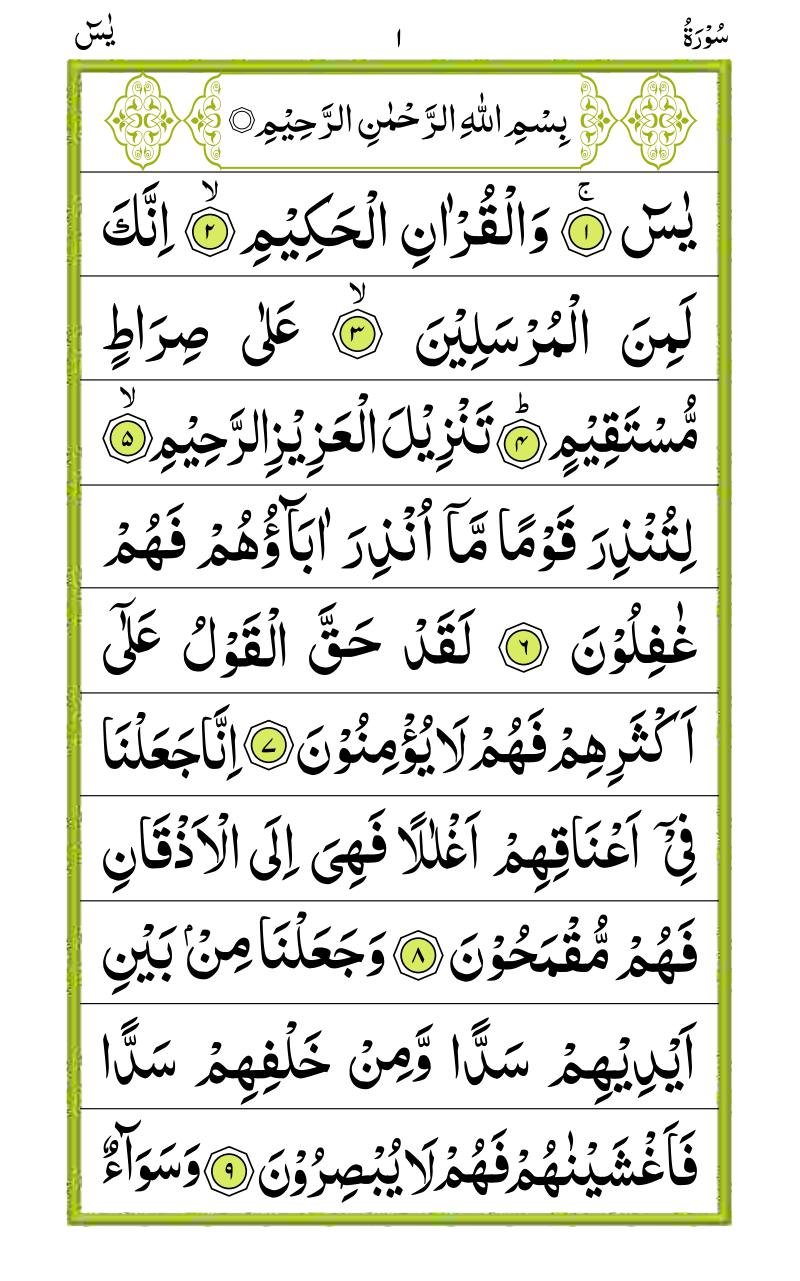 سُوْرَةُ ١ يٰسٓ
بِسْمِ اللّٰهِ الرَّحْمٰنِ الرَّحِيْمِ ۝
يٰسٓ ۚ ﴿۱﴾ وَالْقُرْاٰنِ الْحَكِيْمِ ۙ ﴿۲﴾ اِنَّكَ
لَمِنَ الْمُرْسَلِيْنَ ۙ ﴿۳﴾ عَلٰى صِرَاطٍ
مُّسْتَقِيْمٍ ؕ ﴿۴﴾ تَنْزِيْلَ الْعَزِيْزِ الرَّحِيْمِ ۙ ﴿۵﴾
لِتُنْذِرَ قَوْمًا مَّاۤ اُنْذِرَ اٰبَآؤُهُمْ فَهُمْ
غٰفِلُوْنَ ﴿۶﴾ لَقَدْ حَقَّ الْقَوْلُ عَلٰۤى
اَكْثَرِهِمْ فَهُمْ لَا يُؤْمِنُوْنَ ﴿۷﴾ اِنَّا جَعَلْنَا
فِىْۤ اَعْنَاقِهِمْ اَغْلٰلًا فَهِىَ اِلَى الْاَذْقَانِ
فَهُمْ مُّقْمَحُوْنَ ﴿۸﴾ وَجَعَلْنَا مِنْۢ بَيْنِ
اَيْدِيْهِمْ سَدًّا وَّمِنْ خَلْفِهِمْ سَدًّا
فَاَغْشَيْنٰهُمْ فَهُمْ لَا يُبْصِرُوْنَ ﴿۹﴾ وَسَوَآءٌ